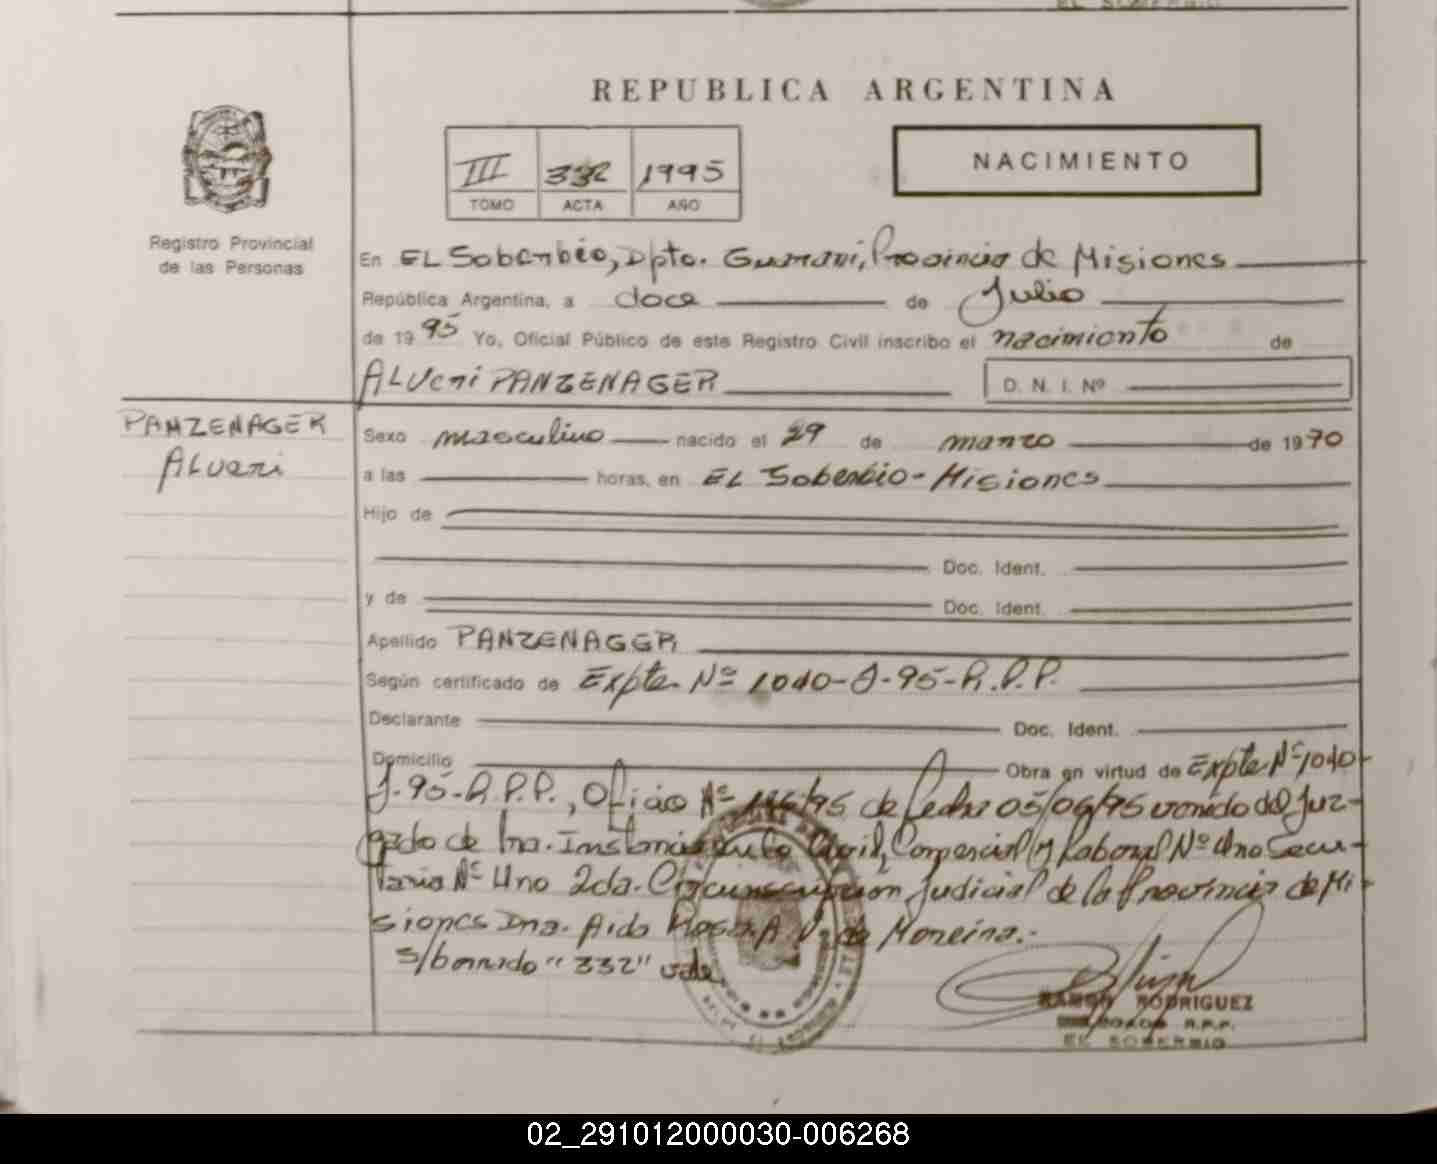 REPUBLICA ARGENTINA
III 332 1995
TOMO ACTA AÑO
NACIMIENTO
Registro Provincial
de las Personas
En EL Soberbio, Dpto. Guarani, Provincia de Misiones
República Argentina, a doce de Julio
de 1995 Yo, Oficial Público de este Registro Civil inscribo el nacimiento de
ALUERI PANZENAGER D. N. I. Nº
PANZENAGER
ALUERI
Sexo masculino nacido el 29 de marzo de 1970
a las horas, en EL Soberbio - Misiones
Hijo de
Doc. Ident.
y de Doc. Ident.
Apellido PANZENAGER
Según certificado de Expte. Nº 1040-J-95-R.P.P.
Declarante Doc. Ident.
Domicilio Obra en virtud de Expte Nº 1040-
J-95-R.P.P., Oficio Nº /95 de fecha 05/06/95 venido del Juz-
gado de 1ra. Instancia en lo Civil, Comercial y Laboral Nº Uno Secre-
taria Nº Uno 2da. Circunscripcion Judicial de la Provincia de Mi-
siones Dra. Aida Rosa A. V. de Moreira.-
s/borrado "332" vale
RAMON RODRIGUEZ
R.P.P.
EL SOBERBIO
02_291012000030-006268